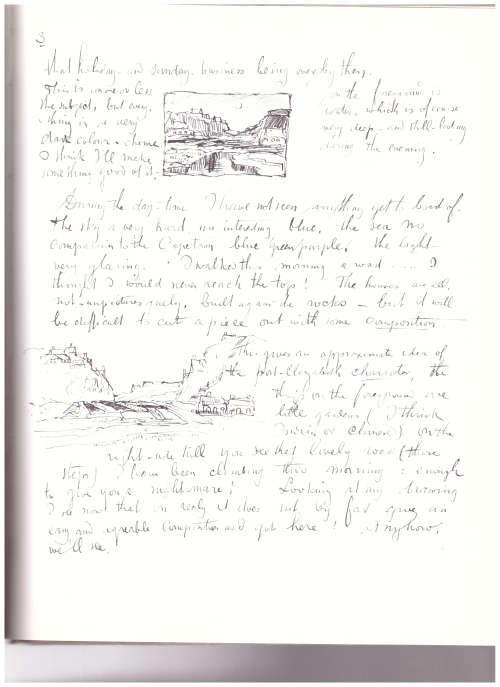 3
that holiday and sunday. business being over by then.
This is more or less
the subject, but every
thing in a very
dark colour-scheme
I think I'll make
something good of it.
on the foreground is
water, which is of course
very deep, and still looking
during the evening.
During the day-time I have not seen anything yet to be of.
the sky a very hard un interesting blue, the sea no
comparison to the blue green/purple, the light
very glaring. I walked this morning a road .... I
thought I would never reach the top! The houses are all,
not unpicturesquely, built against the rocks - but it will
be difficult to cut a piece out with some composition
This gives an approximate idea of
the character, the
thing on the foreground are
little gardens (I think
) on the
right-side hill you see that lovely road (three
steps) I have been climbing this morning: enough
to give you a nightmare! Looking at my drawing
I see now that in reality it does not by far give an
easy and agreeable composition as I got here! Anyhow,
we'll see!